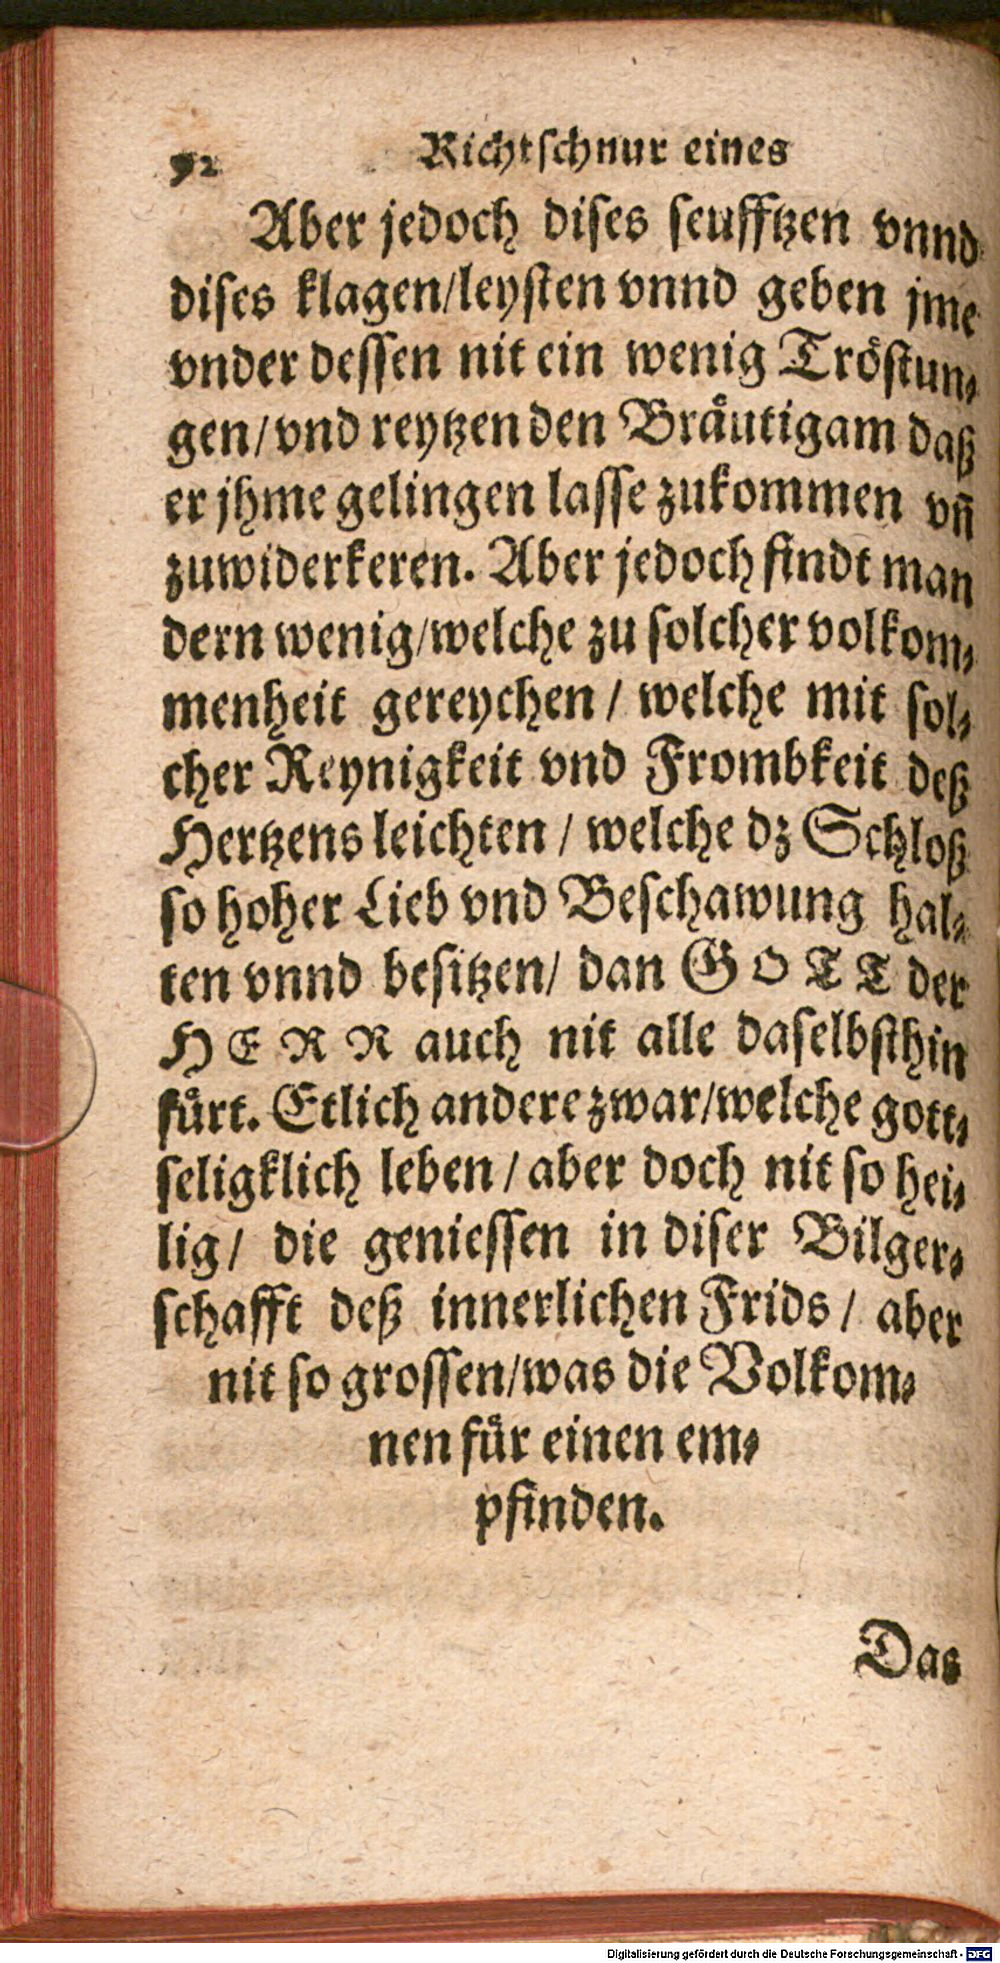 92 Richtschnur eines
Aber jedoch dises seufftzen vnnd
dises klagen/leysten vnnd geben jme
vnder dessen nit ein wenig Tröstun-
gen/vnd reytzen den Bräutigam daß
er jhme gelingen lasse zukommen vñ
zuwiderkeren. Aber jedoch findt man
dern wenig/welche zu solcher volkom-
menheit gereychen / welche mit sol-
cher Reynigkeit vnd Frombkeit deß
Hertzens leichten / welche dz Schloß
so hoher Lieb vnd Beschawung hal-
ten vnnd besitzen/ dan GOTT der
HERR auch nit alle daselbsthin
fürt. Etlich andere zwar/welche gott-
seligklich leben / aber doch nit so hei-
lig/ die geniessen in diser Bilger-
schafft deß innerlichen Frids / aber
nit so grossen/was die Volkom-
nen für einen em-
pfinden.
Das
Digitalisierung gefördert durch die Deutsche Forschungsgemeinschaft - DFG